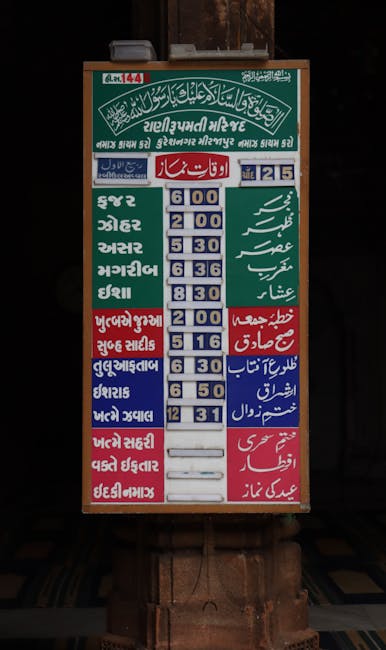 હી.સ. 144
الصلوٰة والسلام علیک یا رسول اللہ ﷺ
રાણીરૂપમતી મસ્જિદ
નમાઝ કાયમ કરો કુરેશનગર મીરજાપુર નમાઝ કાયમ કરો
ربیع الاول اوقاتِ نماز 25
ફજર 6 00 فجر
ઝોહર 2 00 ظہر
અસર 5 30 عصر
મગરીબ 6 36 مغرب
ઈશા 8 30 عشاء
ખુત્બએ જુમ્આ 2 00 خطبۂ جمعہ
સુબ્હ સાદીક 5 16 صبح صادق
તુલૂઆફતાબ 6 30 طلوع آفتاب
ઈશરાક 6 50 اشراق
ખત્મે ઝવાલ 12 31 ختم زوال
ખત્મે સહરી ختم سحری
વક્તે ઈફતાર افطار
ઈદકી નમાઝ عید کی نماز